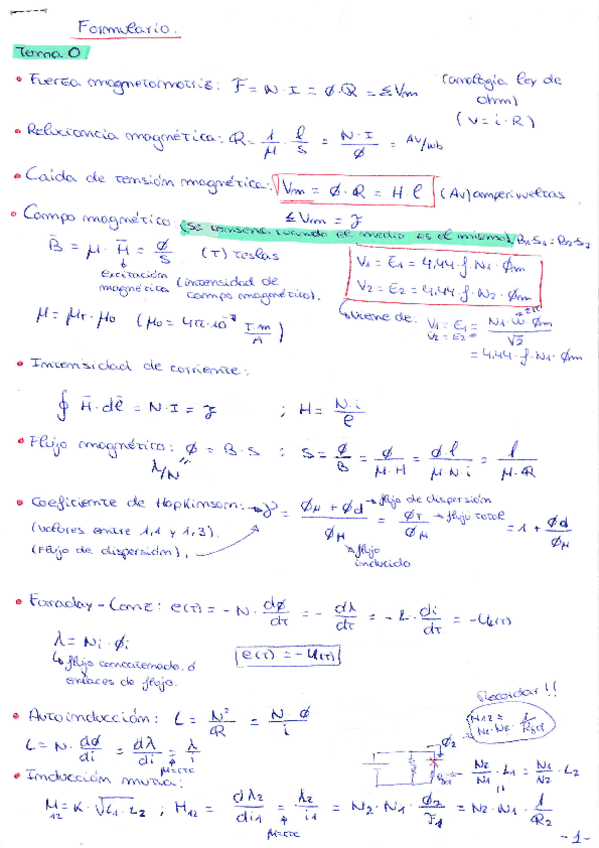 Formulario.
Tema 0
• Fuerza magnetomotriz: F = N · I = ϕ · R = ΣVm (analogía ley de
ohm)
(V = i · R)
• Reluctancia magnética: R = 1/μ · l/S = N · I/ϕ = Av/wb
• Caída de tensión magnética: Vm = ϕ · R = H · l (Av) amperivueltas
ΣVm = F
• Campo magnético: (se conserva cuando el medio es el mismo), B1·S1 = B2·S2
B = μ · H = ϕ/S (T) teslas
excitación
magnética (intensidad de
campo magnético).
V1 = E1 = 4,44 · f · N1 · ϕm
V2 = E2 = 4,44 · f · N2 · ϕm
μ = μr · μo (μo = 4π · 10⁻⁷ T.m/A)
↳ viene de: V1 = E1 = N1 · ω · ϕm/√2
V2 = E2
= 4,44 · f · N1 · ϕm
• Intensidad de corriente:
∮ H · dl = N · I = F ; H = N · i/l
• Flujo magnético: ϕ = B · S ; S = ϕ/B = ϕ/μ · H = ϕ · l/μ · N · i = l/μ · R
λ/N
• Coeficiente de Hopkinson: → γ = ϕμ + ϕd/ϕμ = ϕT/ϕμ = 1 + ϕd/ϕμ
→ flujo de dispersión
→ flujo total
(Valores entre 1,1 y 1,3).
(Flujo de dispersión).
flujo
inducido
• Faraday - Lenz: e(t) = - N · dϕ/dt = - dλ/dt = - L · di/dt = - U(t)
λ = Ni · ϕi
↳ flujo concatenado ó
enlaces de flujo.
e(t) = - U(t)
Recordar!!
• Autoinducción: L = N²/R = N · ϕ/i
L = N · dϕ/di = dλ/di = λ/i
μ = cte
ϕ2
N2/N1 · L1 = N1/N2 · L2
• Inducción mutua:
M12 = K · √L1 · L2 ; M12 = dλ2/di1 = λ2/i1 = N2 · N1 · ϕ2/F1 = N2 · N1 · 1/R2
μ = cte
- 1 -